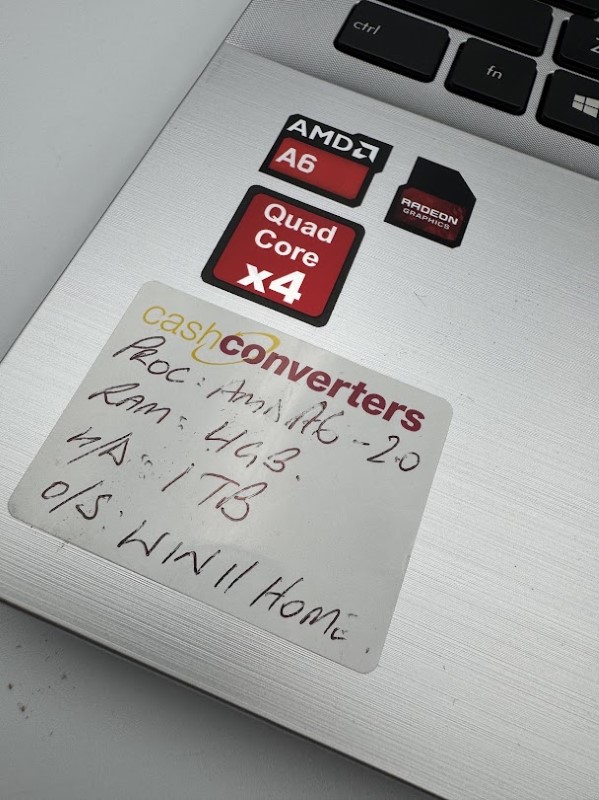 ctrl
fn
Z
AMD
A6
RADEON
GRAPHICS
Quad
Core
x4
cashconverters
PROC: AMD A6-2.0
RAM: 4GB.
H/D: 1TB
O/S: WIN 11 HOME.